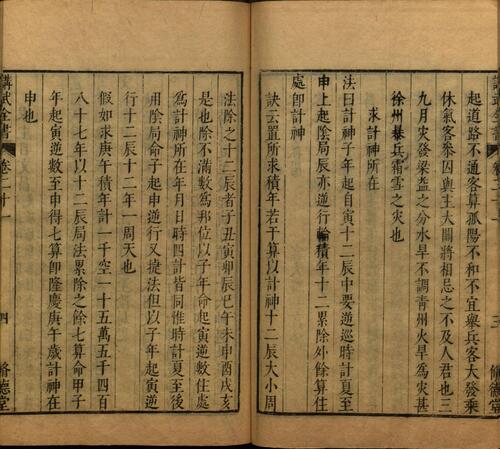 起道路不通客算孤陽不和不宜舉兵客大發乘
休氣客叅囚與主大關將相忌之不及人君也三
九月災發梁益之分水旱不調青州火旱為災甚
徐州暴兵霜雪之災也
求計神所在
法曰計神子年起自寅十二辰中要逆巡時計夏至
申上起陰局辰亦逆行輪積年十二累除外餘算住
處卽計神
訣云置所求積年若干算以計神十二辰大小周
法除之十二辰者子丑寅卯辰巳午未申酉戌亥
是也除不滿數為那位以子年命起寅逆數住處
為計神所在年月日時四計皆同惟時計夏至後
用陰局命子起申逆行又捷法但以子年起寅逆
行十二辰十二年一周天也
假如求庚午積年計一千空一十五萬五千四百
八十七年以十二辰局法累除之餘七算命甲子
年起寅逆數至申得七算卽隆慶庚午歲計神在
申也
講武全書
卷二十一
四
脩德堂
三
脩德堂